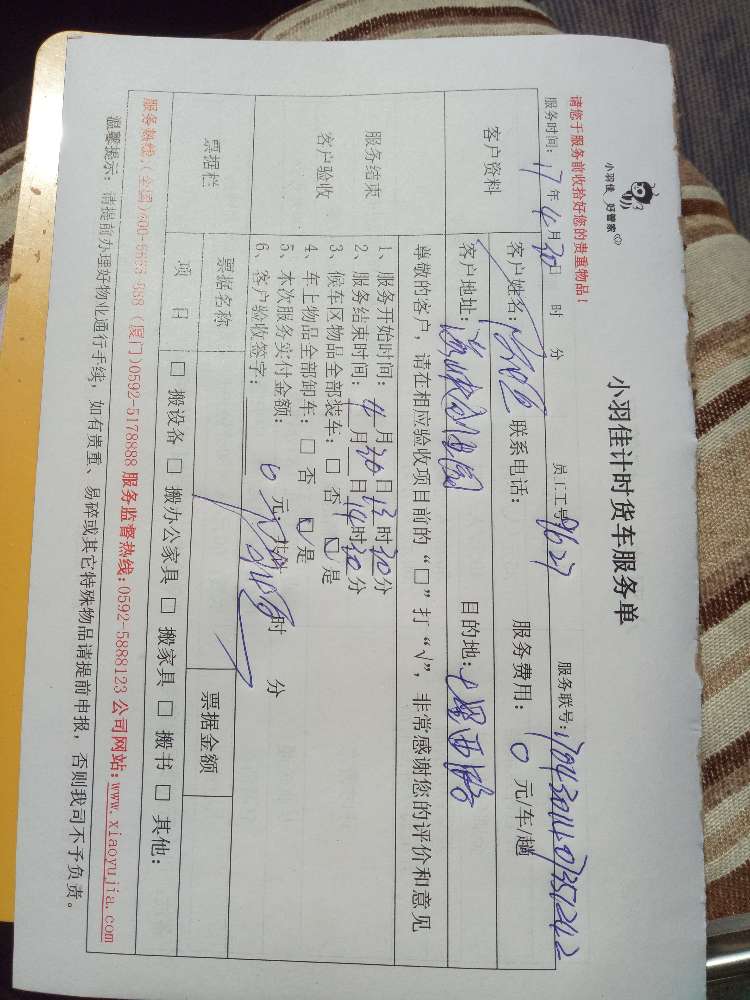 小羽佳 好管家
小羽佳计时货车服务单
请您于服务前收拾好您的贵重物品!
服务时间: 17 年 4 月 30 日 时 分 员工工号: 9627 服务联号:
客户资料
客户姓名: 联系电话: 服务费用: 0 元/车/趟
客户地址: 目的地:
尊敬的客户, 请在相应验收项目前的“□”打“√”, 非常感谢您的评价和意见
服务结束
客户验收
1、服务开始时间: 4 月 30 日 13 时 30 分
2、服务结束时间: 4 月 30 日 14 时 30 分
3、候车区物品全部装车: □ 否 □ 是
4、车上物品全部卸车: □ 否 □ 是
5、本次服务实付金额: 0 元
6、客户验收签字: 时 分
票据栏 票据名称 票据金额
项 目 □ 搬设备 □ 搬办公家具 □ 搬家具 □ 搬书 □ 其他:
服务热线:(全国)400-6683-888 (厦门)0592-5178888 服务监督热线:0592-5888123 公司网站:www.xiaoyujia.com
温馨提示: 请提前办理好物业通行手续, 如有贵重、易碎或其它特殊物品请提前申报, 否则我司不予负责。